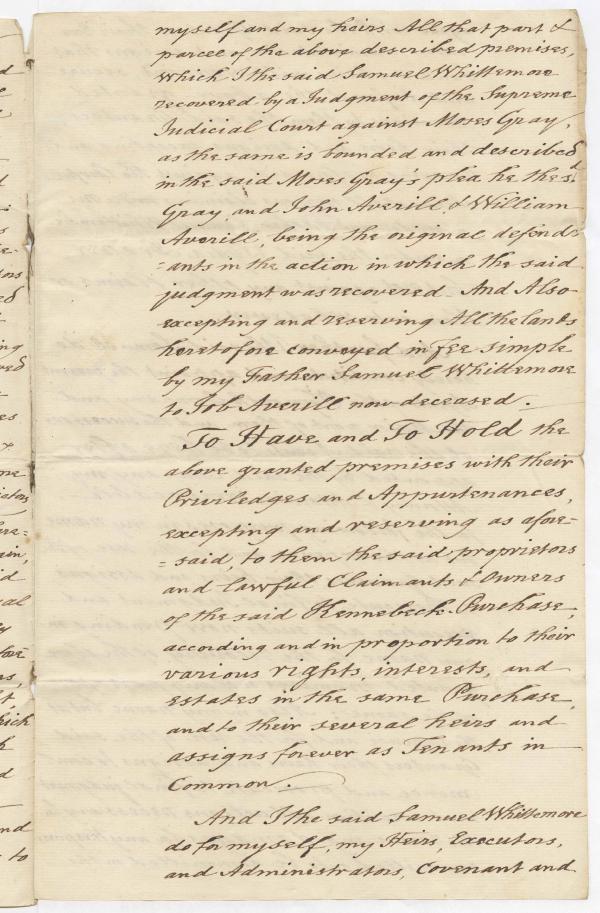 myself and my heirs All that part &
parcel of the above described premises,
which I the said Samuel Whittemore
recovered by a Judgment of the Supreme
Judicial Court against Moses Gray,
as the same is bounded and described
in the said Moses Gray's plea he the sd
Gray, and John Averill, & William
Averill, being the original defend=
=ants in the action in which the said
judgment was recovered. And Also
excepting and reserving All the lands
heretofore conveyed in fee simple
by my Father Samuel Whittemore
to Job Averill now deceased.
To Have and To Hold the
above granted premises with their
Priviledges and Appurtenances,
excepting and reserving as afore=
=said, to them the said proprietors
and lawful Claimants & Owners
of the said Kennebeck Purchase,
according and in proportion to their
various rights, interests, and
estates in the same Purchase,
and to their several heirs and
assigns forever as Tenants in
Common.
And I the said Samuel Whittemore
do for myself, my Heirs, Executors,
and Administrators, Covenant and